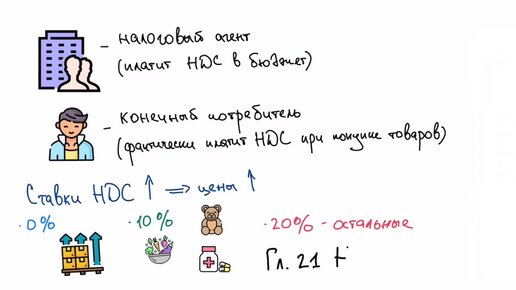 - налоговый агент
(платит НДС в бюджет)
- конечный потребитель
(фактически платит НДС при покупке товаров)
Ставки НДС ↑ ⇒ цены ↑
· 0% · 10% · 20% - остальные
Гл. 21